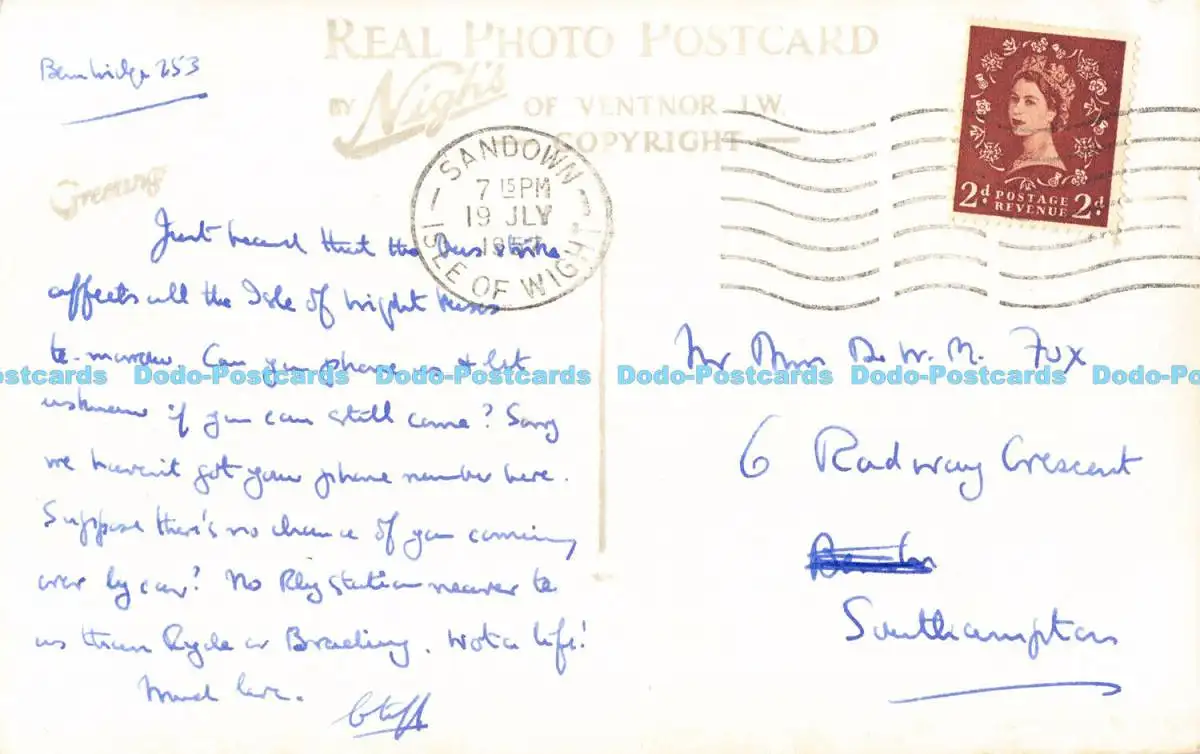 REAL PHOTO POSTCARD
BY Nigh's OF VENTNOR I.W.
COPYRIGHT
Bembridge 253
Greetings
SANDOWN
7 15 PM
19 JLY
1957
ISLE OF WIGHT
2d POSTAGE REVENUE 2d
Just heard that the bus strike
affects all the Isle of Wight buses
to-morrow. Can you phone us & let
us know if you can still come? Sorry
we haven't got your phone number here.
Suppose there's no chance of you coming
over by car? No Rly station nearer to
us than Ryde or Brading. Wot a life!
Much love.
Mr Mrs D. W. M. Fox
6 Radway Crescent
Southampton
Dodo-Postcards Dodo-Postcards Dodo-Postcards Dodo-Postcards Dodo-Postcards Dodo-Po